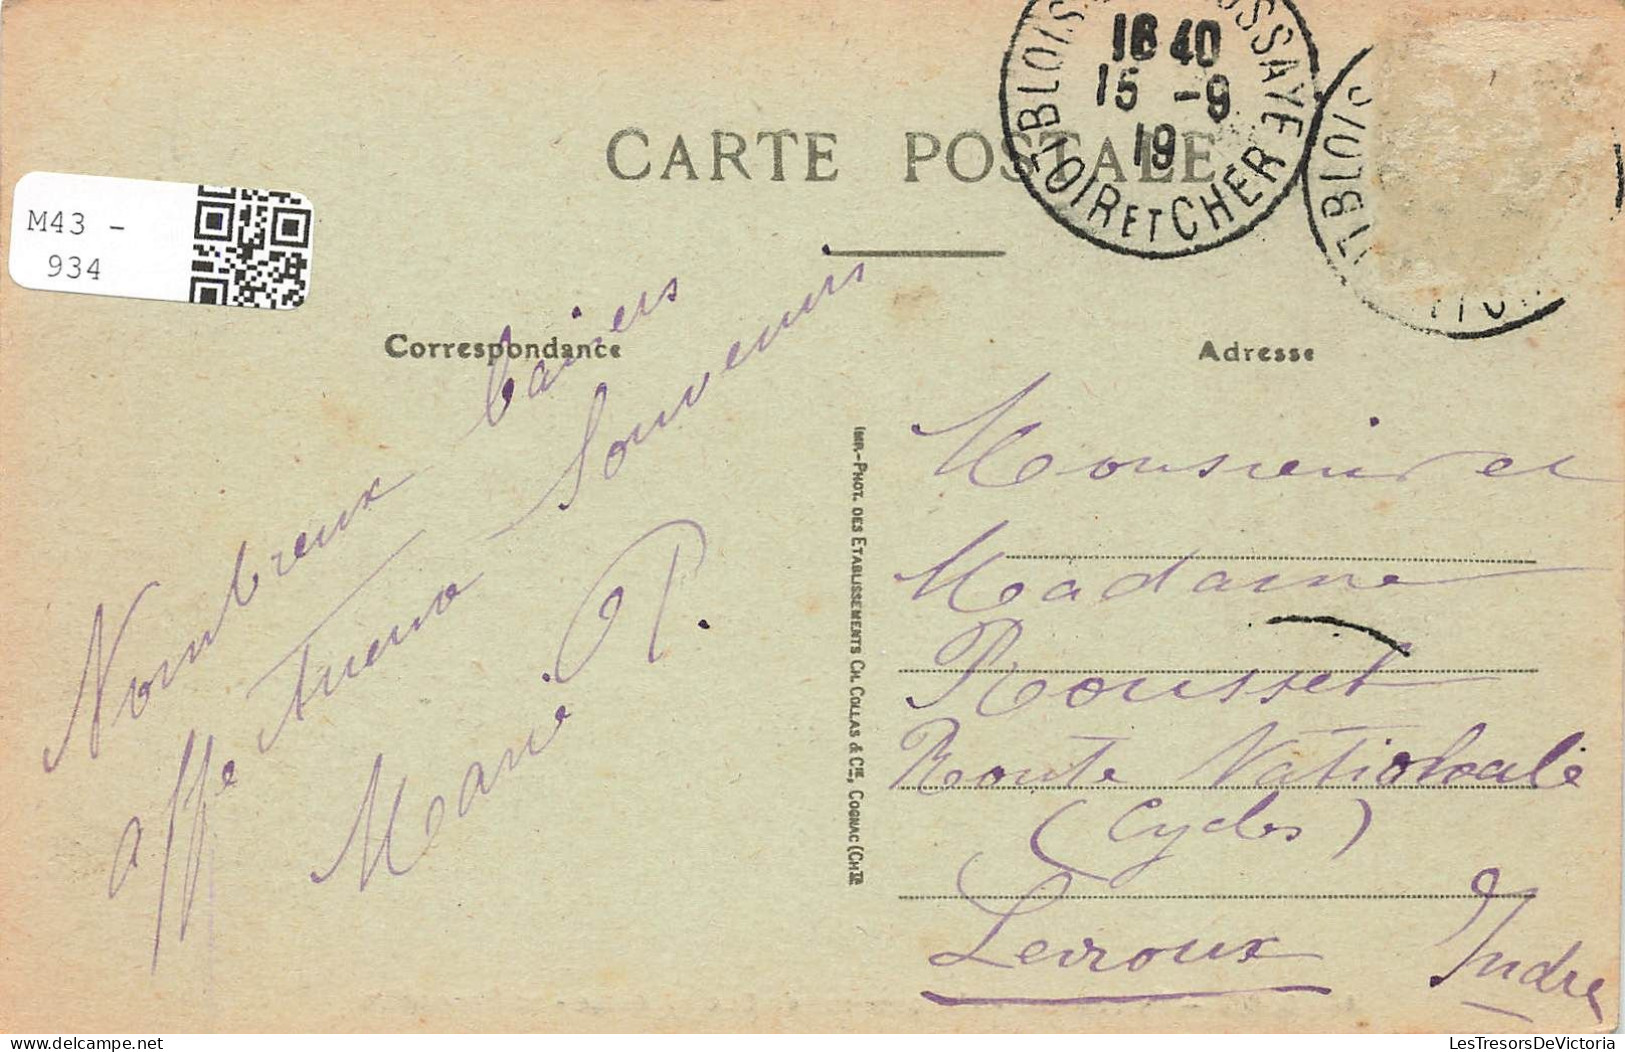 CARTE POSTALE
BLOIS
USSAYE
18 40
15 -9
19
LOIR ET CHER
BLOIS
M43 -
934
Correspondance
Adresse
Nombreux baisers
affectueux Souvenirs
Marie P.
IMP.-PHOT. DES ETABLISSEMENTS CH. COLLAS & CIE, COGNAC (CHTE)
Monsieur et
Madame
Rousset
Route Nationale
(Cycles)
Levroux Indre
LesTresorsDeVictoria
https://www.delcampe.net